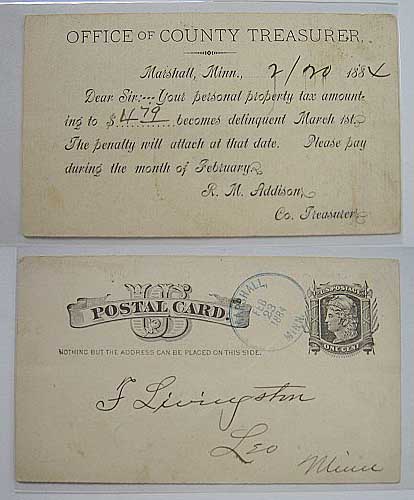 OFFICE OF COUNTY TREASURER.
Marshall, Minn., 2/20 1884
Dear Sir:--- Your personal property tax amount-
ing to $ 4 79 becomes delinquent March 1st.
The penalty will attach at that date. Please pay
during the month of February.
R. M. Addison,
Co. Treasurer.
US
POSTAL CARD.
NOTHING BUT THE ADDRESS CAN BE PLACED ON THIS SIDE.
MARSHALL,
FEB
23
1884
MINN.
U.S. POSTAGE
ONE CENT
F Livingston
Leo
Minn